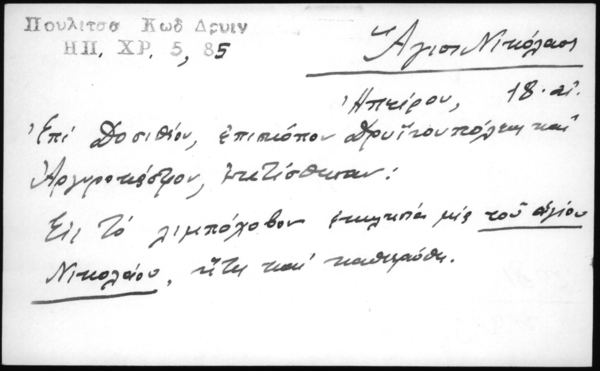 Πουλιτσα Κωδ Δρυιν
ΗΠ. ΧΡ. 5, 85
Ἅγιος Νικόλαος
Ἠπείρου, 18. αἰ.
Ἐπί Δοσιθέου, ἐπισκόπου Δρυϊνουπόλεως καί
Ἀργυροκάστρου, ἐκτίσθησαν:
Εἰς τό Λιμπόχοβον ἐκκλησία μία τοῦ ἁγίου
Νικολάου, ἥτις καί καθιερώθη.